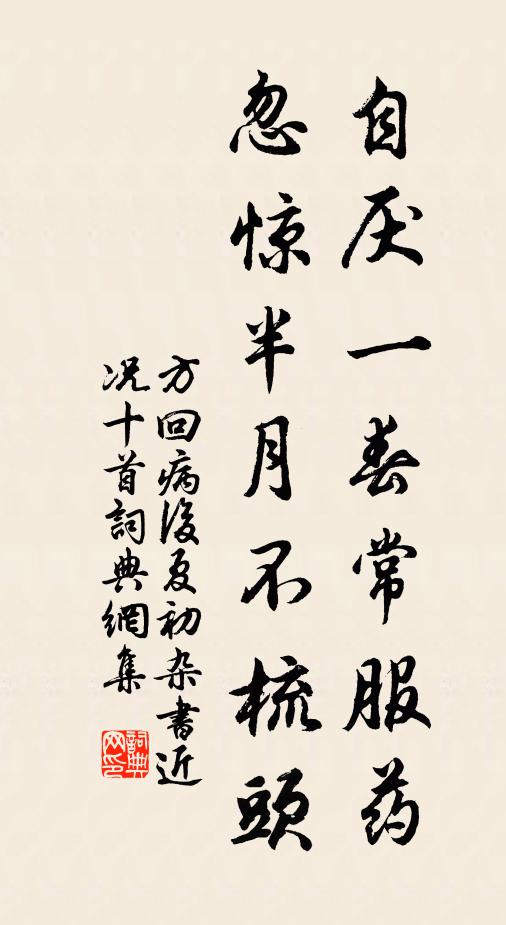 自厌一春常服药
忽惊半月不梳頭
方回病後夏初杂書近
况十首詞典網集
詞典
网印